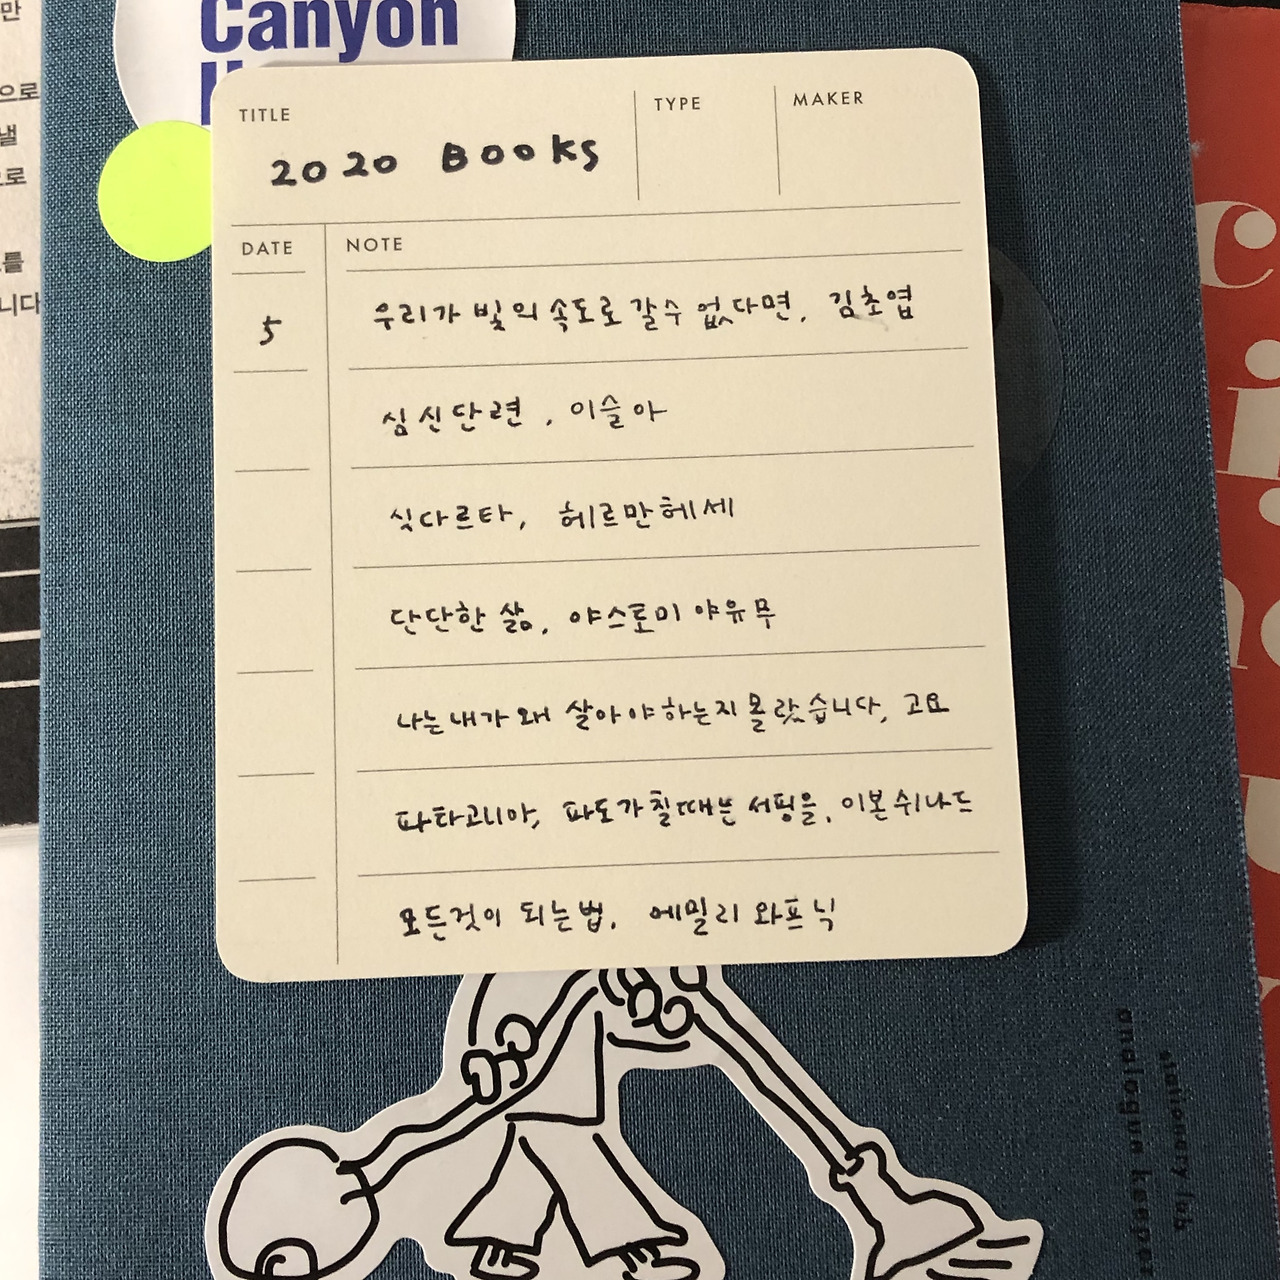 만
으로
낼
로
를
니다
Canyon
TITLE
2020 Books
TYPE
MAKER
DATE
NOTE
5
우리가 빛의 속도로 갈수 없다면, 김초엽
심신단련, 이슬아
싯다르타, 헤르만헤세
단단한 삶, 야스토미 야유무
나는 내가 왜 살아야하는지 몰랐습니다, 고요
파타고니아, 파도가칠때는 서핑을, 이본쉬나드
모든것이 되는법, 에밀리 와프닉
analogue keeper
stationery lab